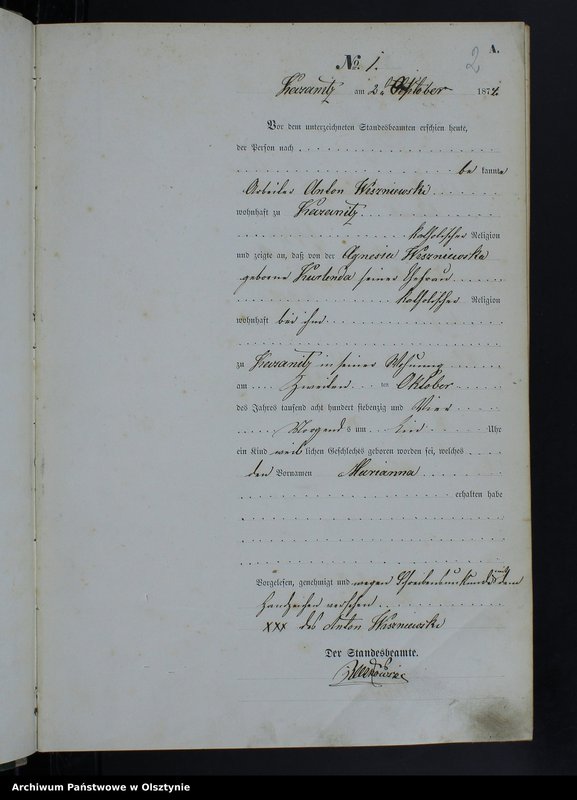 2
A.
№ 1.
Kazanitz am 2. Oktober 1874.
Vor dem unterzeichneten Standesbeamten erschien heute,
der Person nach
be kannte
Arbeiter Anton Wiszniewski
wohnhaft zu Kazanitz
katholischer Religion
und zeigte an, daß von der Agnesia Wiszniewska
geborne Kurlenda seiner Ehefrau
katholischer Religion
wohnhaft bei ihm
zu Kazanitz in seiner Wohnung
am Zweiten ten Oktober
des Jahres tausend acht hundert siebenzig und Vier
Morgend s um Uhr
ein Kind weib lichen Geschlechts geboren worden sei, welches
den Vornamen Marianna
erhalten habe
Vorgelesen, genehmigt und wegen Schreibensunkunde mit dem
Handzeichen versehen
XXX des Anton Wiszniewski
Der Standesbeamte.
Archiwum Państwowe w Olsztynie